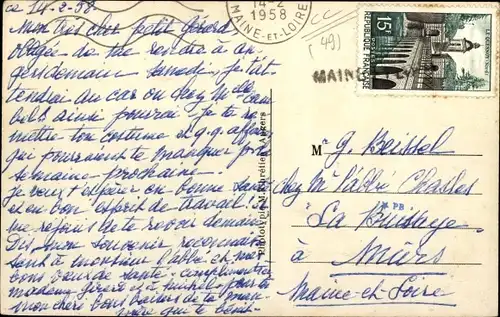 ce 14-2-58
Mon très cher petit Gérard
obligée de me rendre à
demain samedi, je t'at-
tendrai au car ou
ainsi pourrai je te re-
mettre ton costume et q.q. affaires
qui pourraient te manquer pr la
semaine prochaine.
Je veux espérer en bonne santé
et en bon esprit de travail!
me réjouis de te revoir demain
Dis mon souvenir reconnais-
sant à monsieur l'abbé et mes
bons vœux de santé - compliments
madame Gérard et à Michel pour toi
mon chéri bons baisers de ta mam-
qui te bénit
14-2
1958
MAINE-ET-LOIRE
(49)
MAINE
15F
POSTES
REPUBLIQUE FRANÇAISE
LE QUESNOY
Phototypie M. Chrétien, Angers
M G. Beissel
chez Mr l'abbé Charles
La
à
Maine-et-Loire
PB